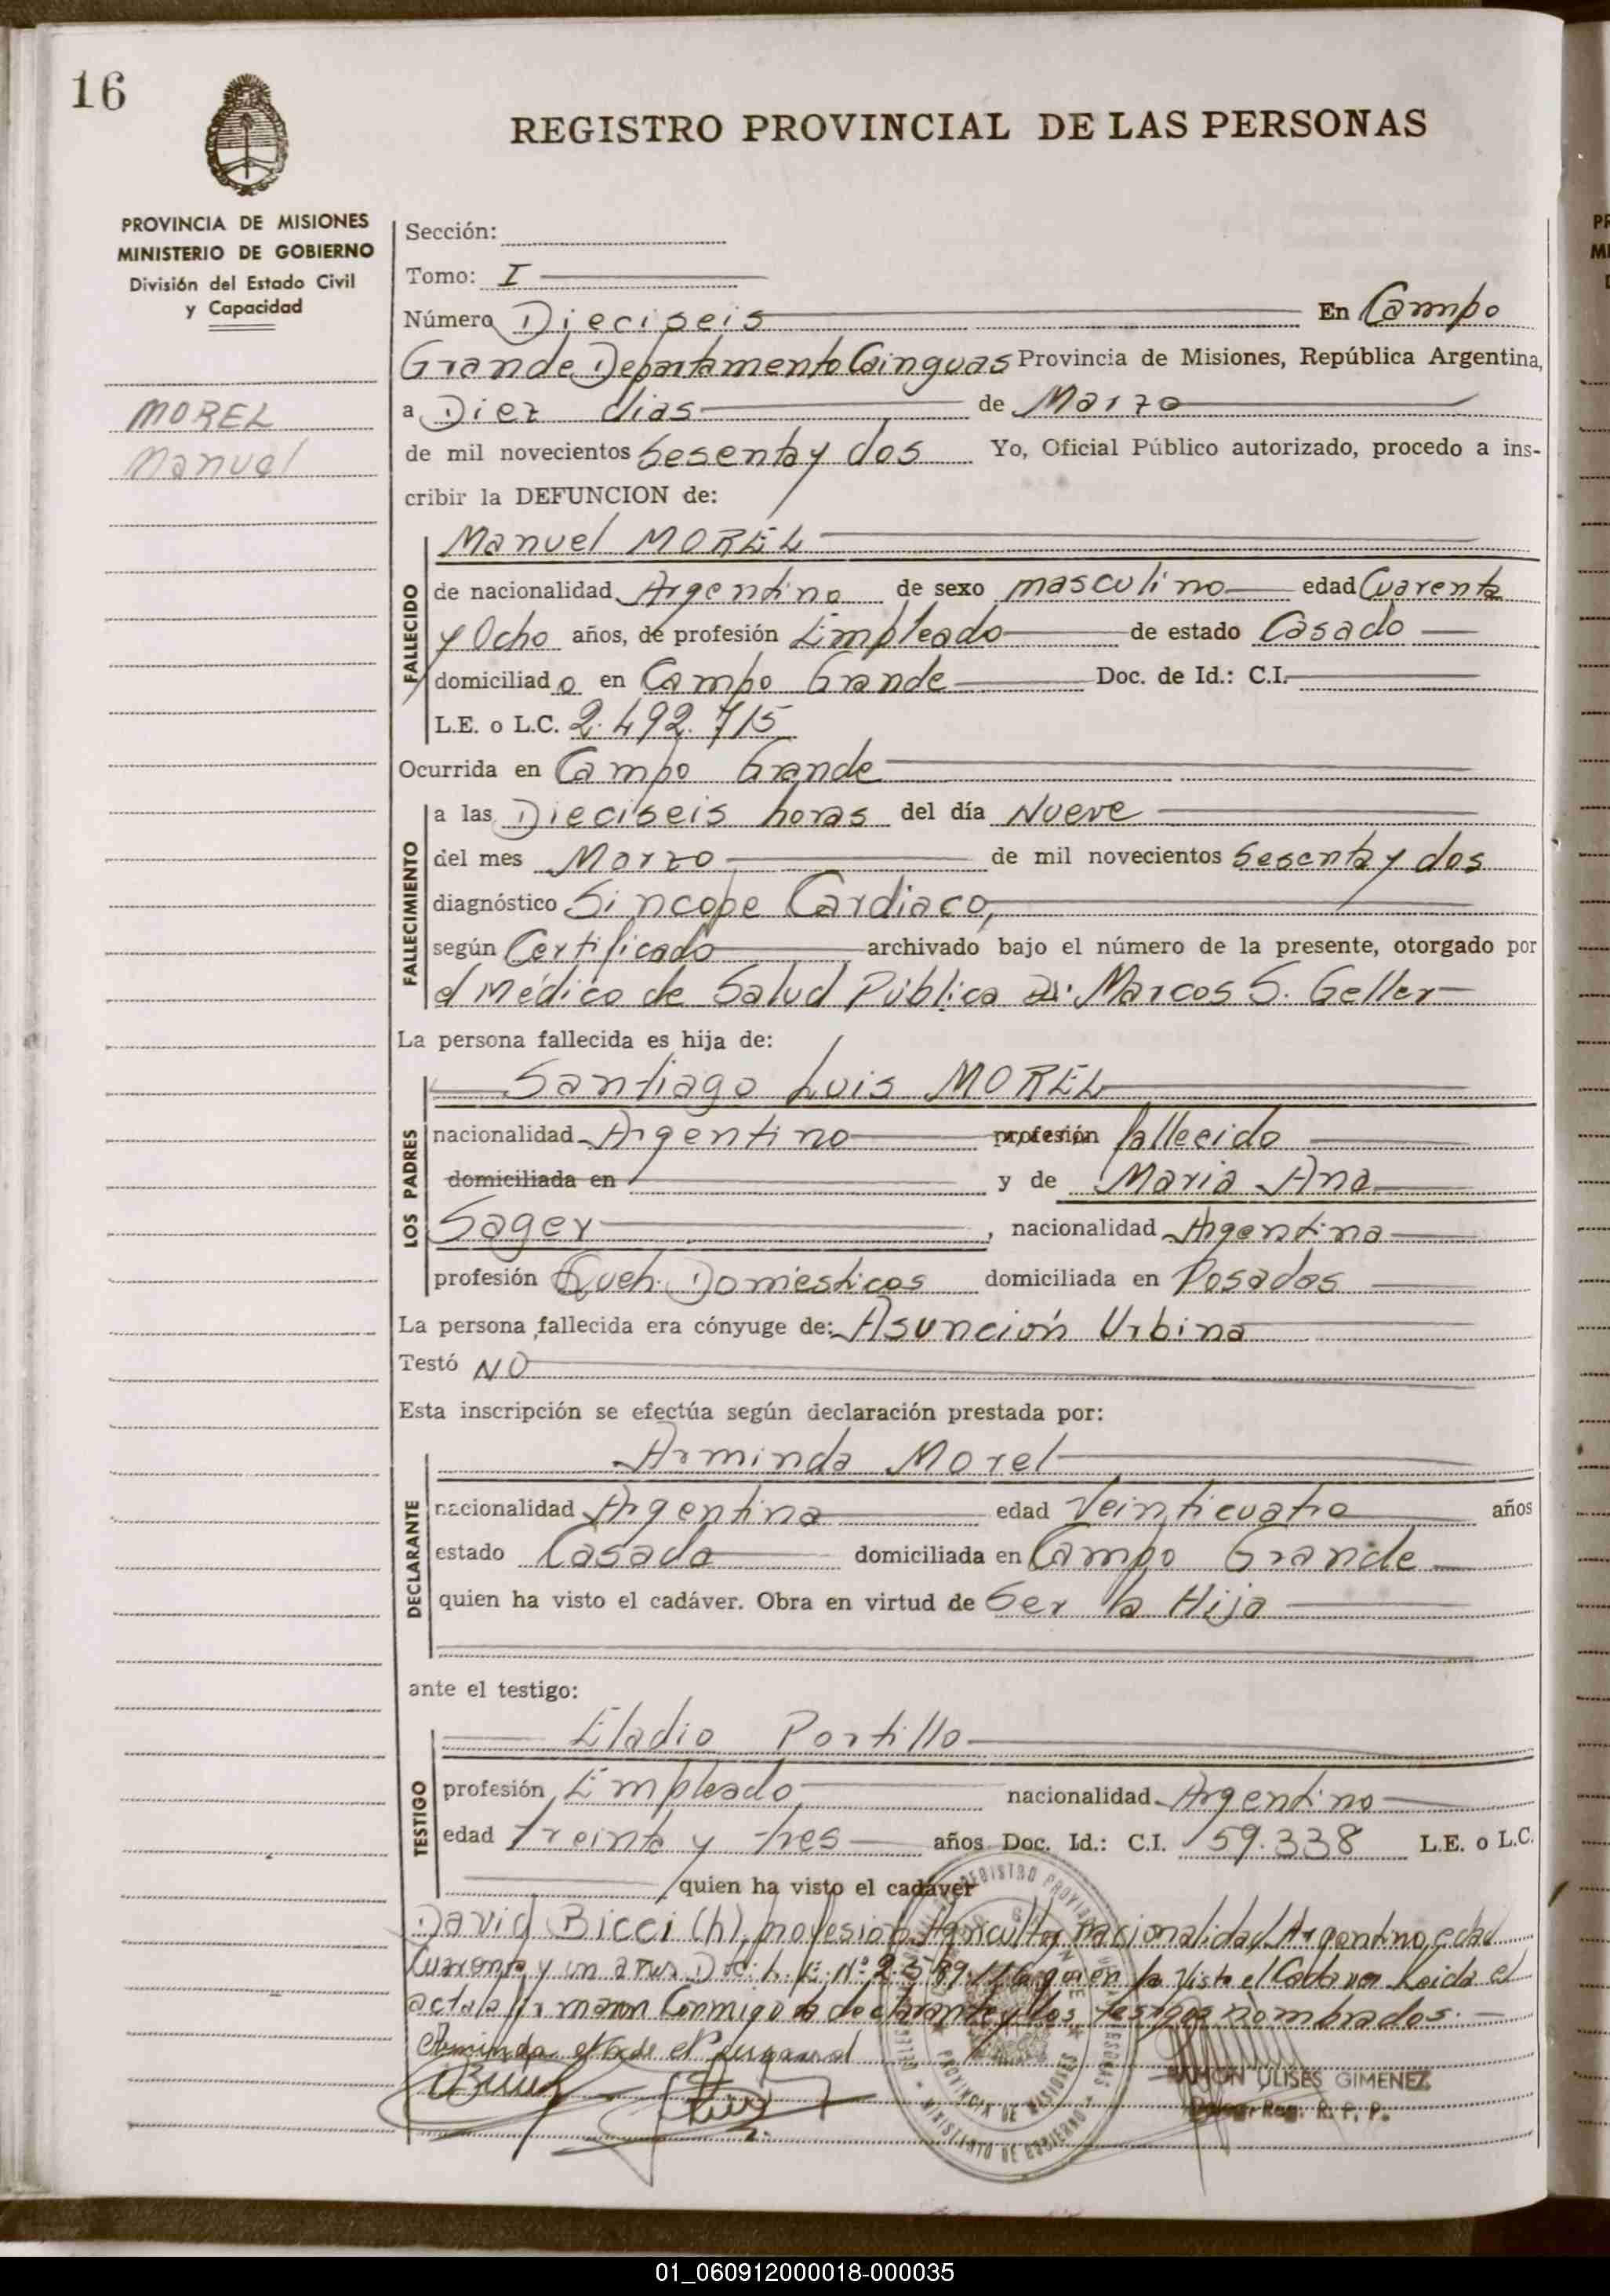 16
REGISTRO PROVINCIAL DE LAS PERSONAS
PROVINCIA DE MISIONES
MINISTERIO DE GOBIERNO
División del Estado Civil
y Capacidad
MOREL
Manuel
Sección:
Tomo: I
Número Dieciseis En Campo
Grande Departamento Cainguas Provincia de Misiones, República Argentina,
a Diez dias de Marzo
de mil novecientos Sesenta y dos Yo, Oficial Público autorizado, procedo a ins-
cribir la DEFUNCION de:
Manuel MOREL
FALLECIDO
de nacionalidad Argentino de sexo masculino edad Cuarenta
y Ocho años, de profesión Empleado de estado Casado
domiciliado en Campo Grande Doc. de Id.: C.I.
L.E. o L.C. 2.492.715
Ocurrida en Campo Grande
FALLECIMIENTO
a las Dieciseis horas del día Nueve
del mes Marzo de mil novecientos Sesenta y dos
diagnóstico Sincope Cardiaco,
según Certificado archivado bajo el número de la presente, otorgado por
el Médico de Salud Pública Dr. Marcos S. Geller
La persona fallecida es hija de:
Santiago Luis MOREL
LOS PADRES
nacionalidad Argentino profesión fallecido
domiciliada en y de Maria Ana
Sager, nacionalidad Argentina
profesión Queh. Domesticos domiciliada en Posadas
La persona fallecida era cónyuge de: Asunción Urbina
Testó NO
Esta inscripción se efectúa según declaración prestada por:
Arminda Morel
DECLARANTE
nacionalidad Argentina edad Veinticuatro años
estado Casada domiciliada en Campo Grande
quien ha visto el cadáver. Obra en virtud de Ser la Hija
ante el testigo:
Eladio Portillo
TESTIGO
profesión Empleado nacionalidad Argentino
edad Treinta y tres años Doc. Id.: C.I. 59.338 L.E. o L.C.
quien ha visto el cadáver
David Bicci (h), profesión Agricultor, nacionalidad Argentino, edad
Cuarenta y un años Doc. L.E. Nº quien ha visto el Cadaver Leida el
acta la firman Conmigo la declarante y los testigos nombrados.
Arminda
REGISTRO PROVINCIAL
PROVINCIA DE MISIONES
MINISTERIO DE GOBIERNO
RAMON ULISES GIMENEZ
R. P. P.
01_060912000018-000035